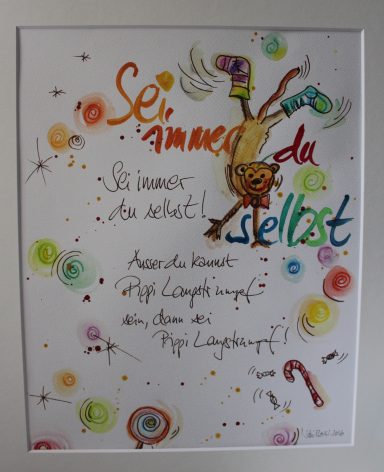 Sei
immer du
selbst
Sei immer
du selbst!
Ausser du kannst
Pippi Langstrumpf
sein, dann sei
Pippi Langstrumpf!
2016